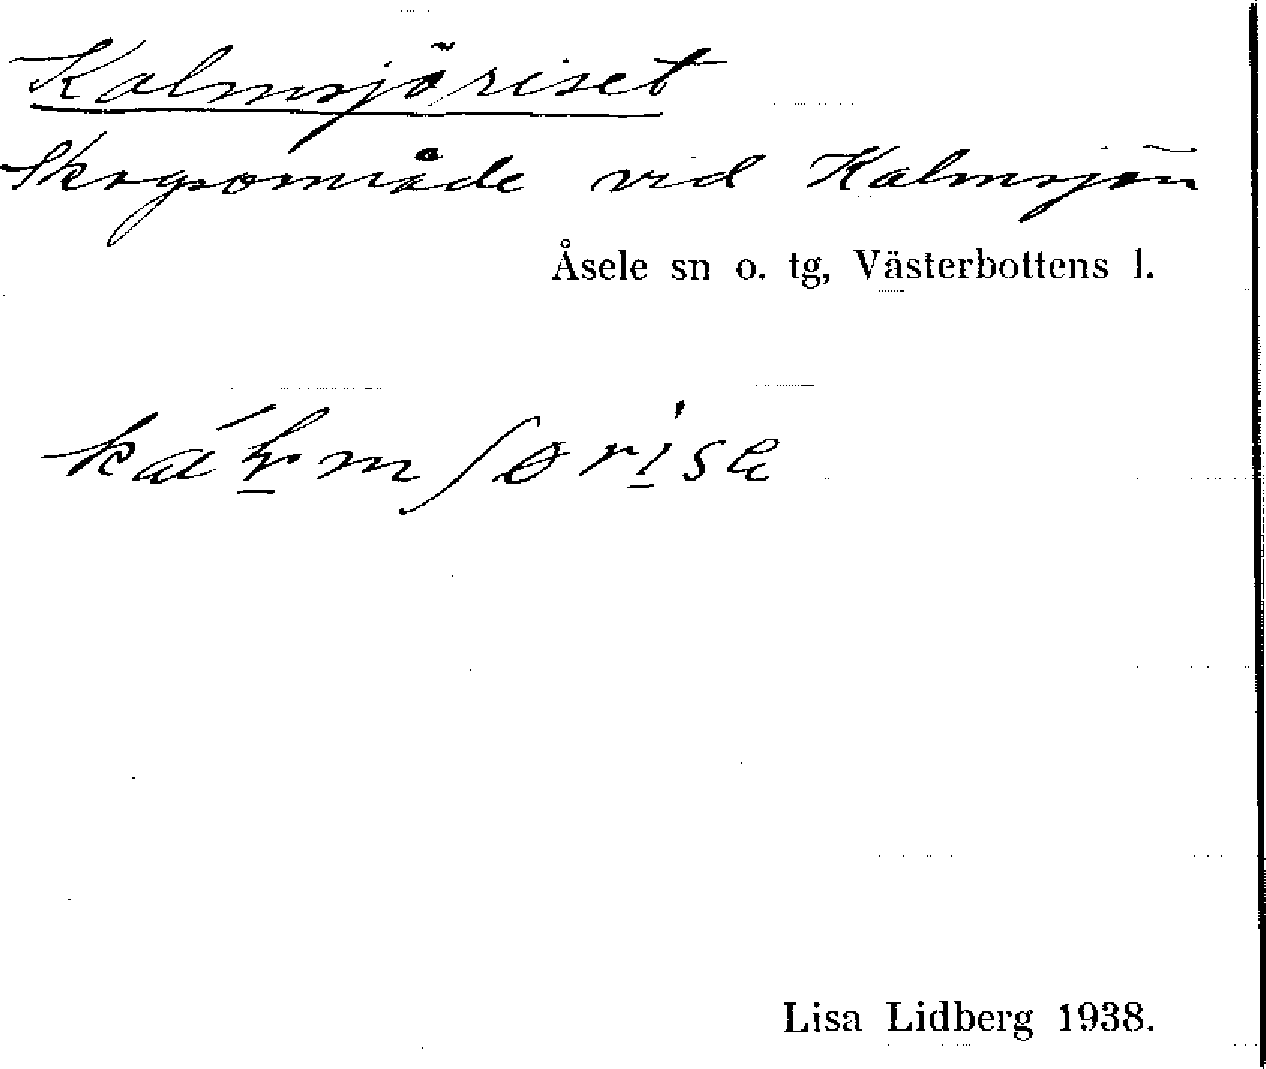 Kalmsjöriset
Skogsområde vid Kalmsjön
Åsele sn o. tg, Västerbottens l.
Lisa Lidberg 1938.